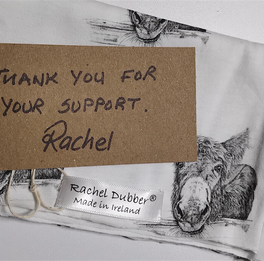 THANK YOU FOR
YOUR SUPPORT.
Rachel
Rachel Dubber®
Made in Ireland